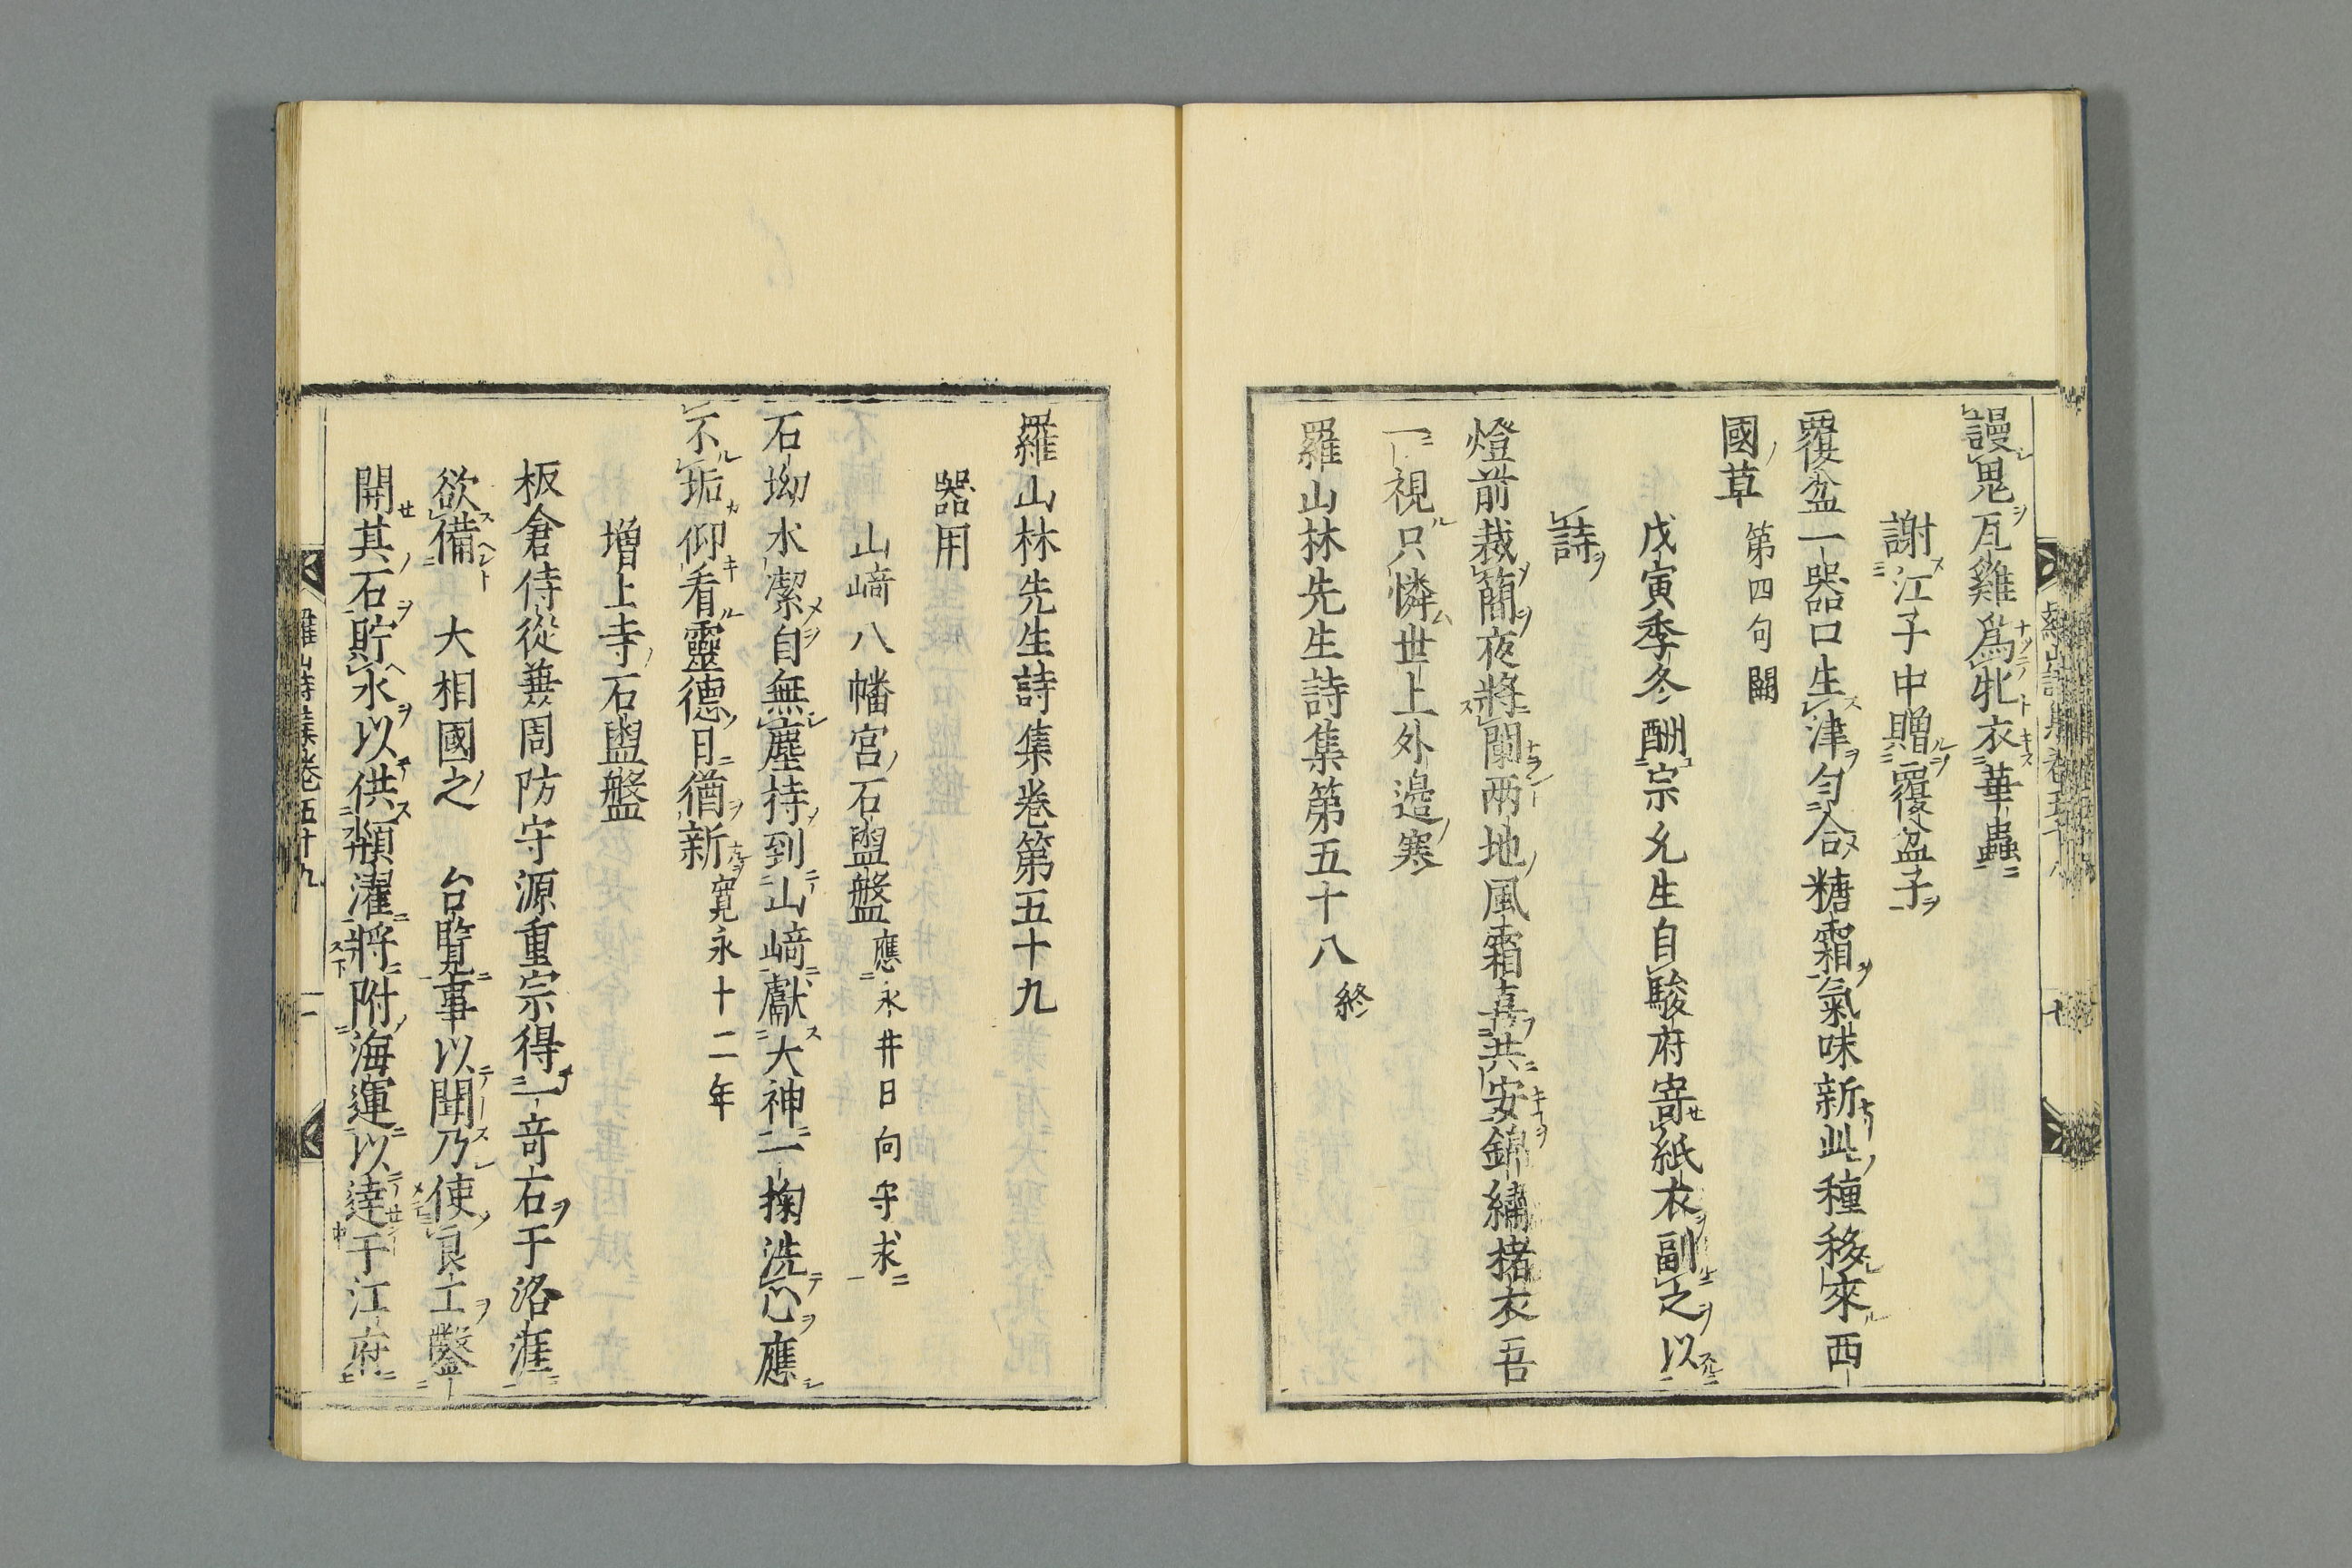 謾鬼瓦雞爲牝衣華蟲
謝江子中贈覆盆子
覆盆一器口生津勻合糖霜氣味新此種移來西
國草 第四句闕
戊寅季冬酬宗允生自駿府寄紙衣副之以
詩
燈前裁簡夜將闌兩地風霜喜共安錦繡楮衣吾
一視只憐世上外邉寒
羅山林先生詩集第五十八 終
羅山林先生詩集卷第五十九
器用
山﨑八幡宮石盥盤 應永井日向守求
石坳水潔自無塵持到山﨑獻大神一掬洗心應
不垢仰看靈德日猶新 寛永十二年
增上寺石盥盤
板倉侍從兼周防守源重宗得一奇石于洛涯
欲備 大相國之 台覽事以聞乃使良工鑿
開其石貯水以供頮濯將附海運以達于江府
羅山詩集卷五十九 一